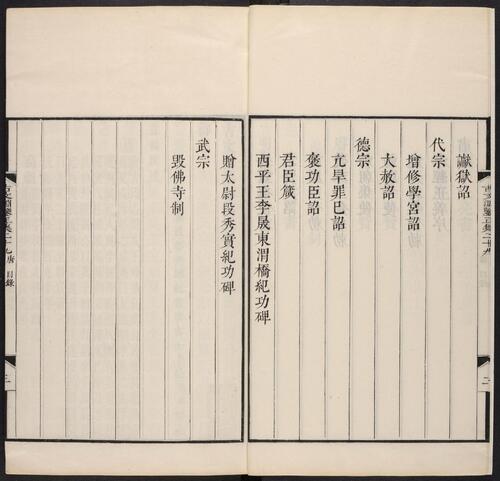 讞獄詔
代宗
增修學宮詔
大赦詔
德宗
亢旱罪已詔
褒功臣詔
君臣箴
西平王李晟東渭橋紀功碑
二
贈太尉段秀實紀功碑
武宗
毁佛寺制
唐 目錄
三